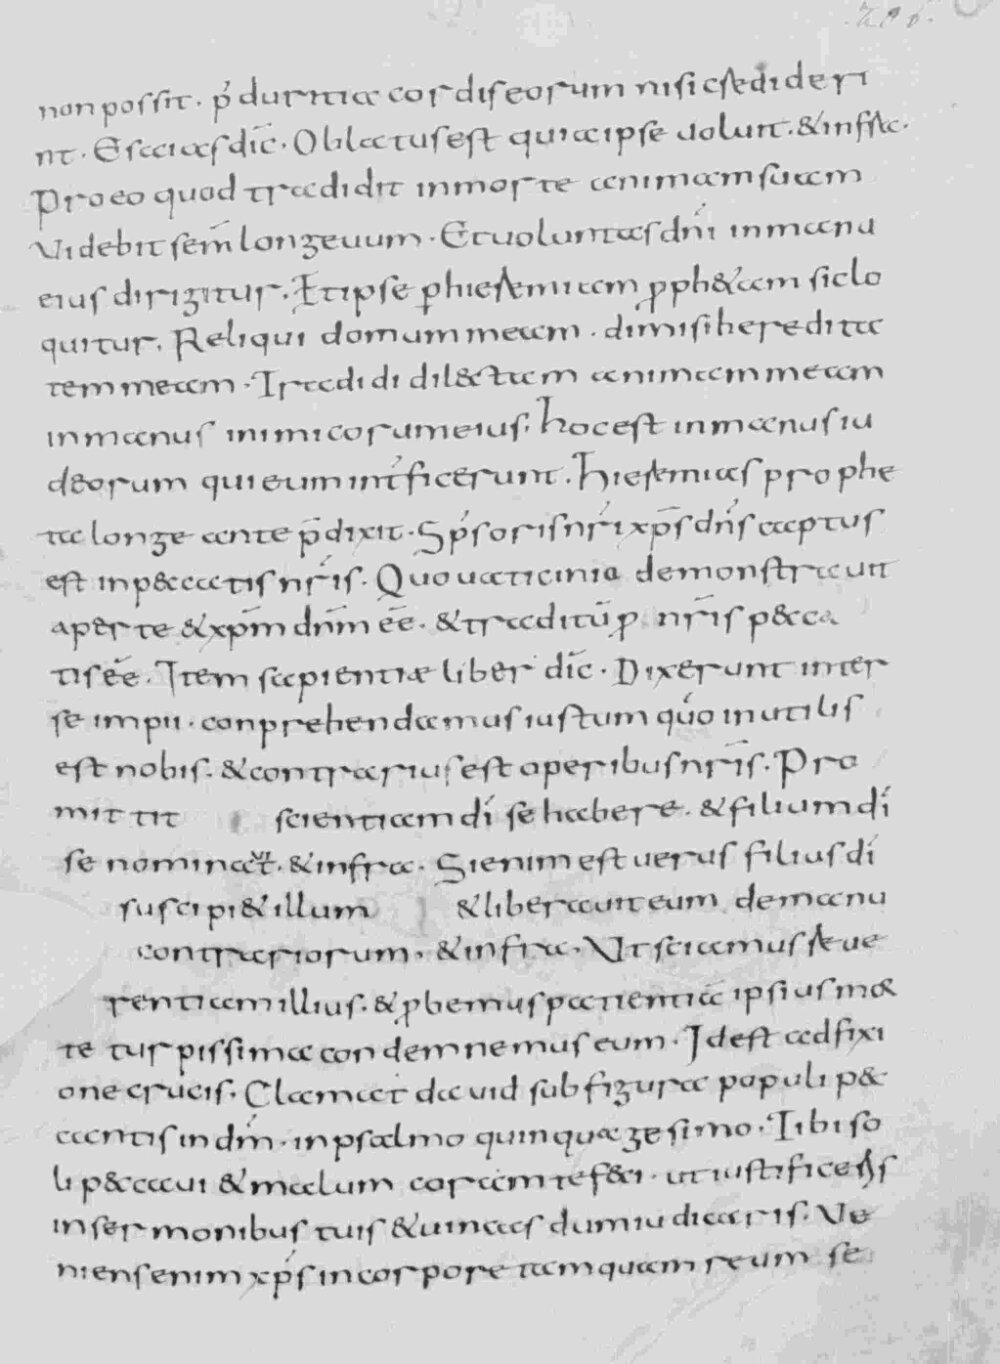 non possit. ṕ duritia cordis eorum nisi crediderı
nt. Esaias dic̄. Oblatus est quia ipse uoluit. & infra.
Pro eo quod tradidit in morte animam suam
Videbit sem̄ longeuum. Et uoluntas dn̄i in manu
eius dirigitur. Et ipse ꝑ hieremiam ꝓph&am sic lo
quitur. Reliqui domum meam. dimisi heredita
tem meam. Tradidi dil&tam animam meam
in manus inimicorum eius. hoc est in manus iu
deorum qui eum int́ficerunt. Hieremias prophe
ta longe ante p̄dixit. Sṕs oris nr̄i xp̄s dn̄s captus
est in p&catis nr̄is. Quo uaticinio demonstrauit
aperte & xp̄m dn̄m ēē. & traditū ꝓ nr̄is p&ca
tis ēē. Item sapientiæ liber dic̄. Dixerunt inter
se impii. conprehendamus iustum qúo inutilis
est nobis. & contrarius est operibus nr̄is. Pro
mittit scientiam dí se habere. & filium dí
se nominat. & infra. Si enim est uerus filius dí
suscipi& illum & liberauit eum de manu
contrariorum. & infra. Vt sciamus reue
rentiam illius. & ꝓbemus patientiā ipsius mor
te turpissima condemnemus eum. Id est ad fixi
one crucis. Clamat dauid sub figura populi p&
cantis in dm̄. in psalmo quinquagesimo. Tibi so
li p&caui & malum coram te feci. ut iustificeris
in sermonibus tuis & uincas dum iudicaris. Ve
niens enim xp̄s in corpore tamquam reum se